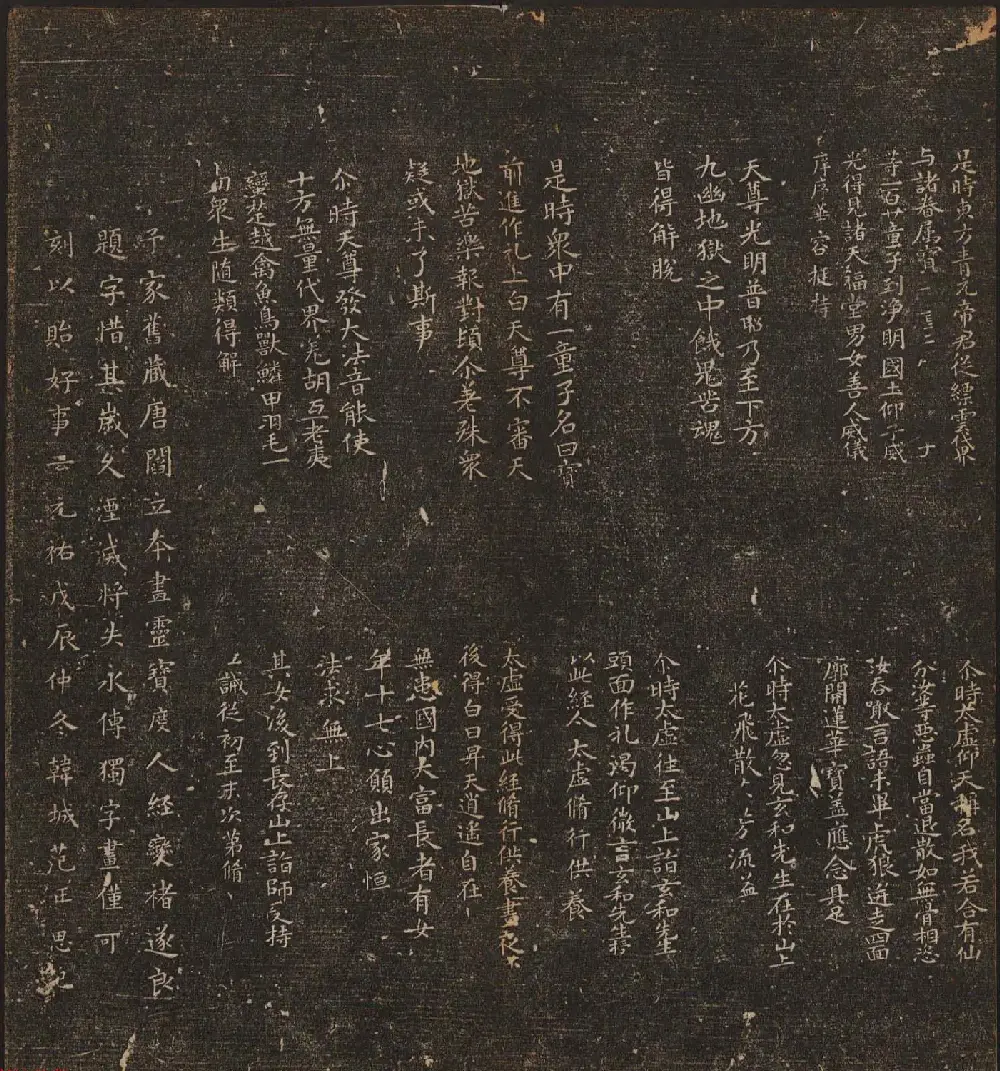 是時東方青元帝君從縹雲世界
与諸眷屬寶
等一百廿童子到淨明國土仰子威
光得見諸天福堂男女善人威儀
序序華容挺特
天尊光明普照乃至下方
九幽地獄之中餓鬼苦魂
皆得解脫
是時衆中有一童子名曰寶
前進作礼上白天尊不審天
地獄苦樂報對頓尒差殊衆
疑或未了斯事
尒時天尊發大法音能使
十方無量代界羌胡互老夷
蠻楚越禽魚鳥獸鱗甲羽毛一
切衆生随類得解
尒時太虛仰天稱名我若合有仙
分業惡蟲自當退散如無骨相恣
汝吞噉言語未畢虎狼逬走四面
廓開蓮華寶盖應念具足
尒時太虛忽見玄和先生在於山上
花飛散
尒時太虛往至山上詣玄和先生
頭面作礼渴仰微言玄和先生
以此經人太虛脩行供養
太虛受得此經脩行供養晝夜
後得白日昇天道遙自在
無患國内大富長者有女
年十七心願出家恒
法求無上
其女後到長存山上詣師受持
誡從初至末次第脩
予家舊藏唐閻立本畫靈寶度人經變褚遂良
題字惜其歲久湮滅將失永傳獨字畫僅可
刻以貽好事云元祐戊辰仲冬韓城范正思記